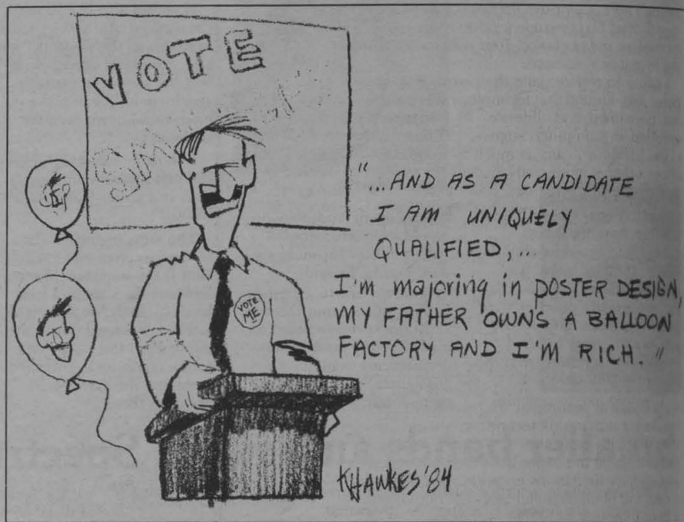 VOTE
"...AND AS A CANDIDATE
I AM UNIQUELY
QUALIFIED,...
I'm majoring in POSTER DESIGN,
MY FATHER OWNS A BALLOON
FACTORY AND I'M RICH."
VOTE
ME
KHAWKES '84